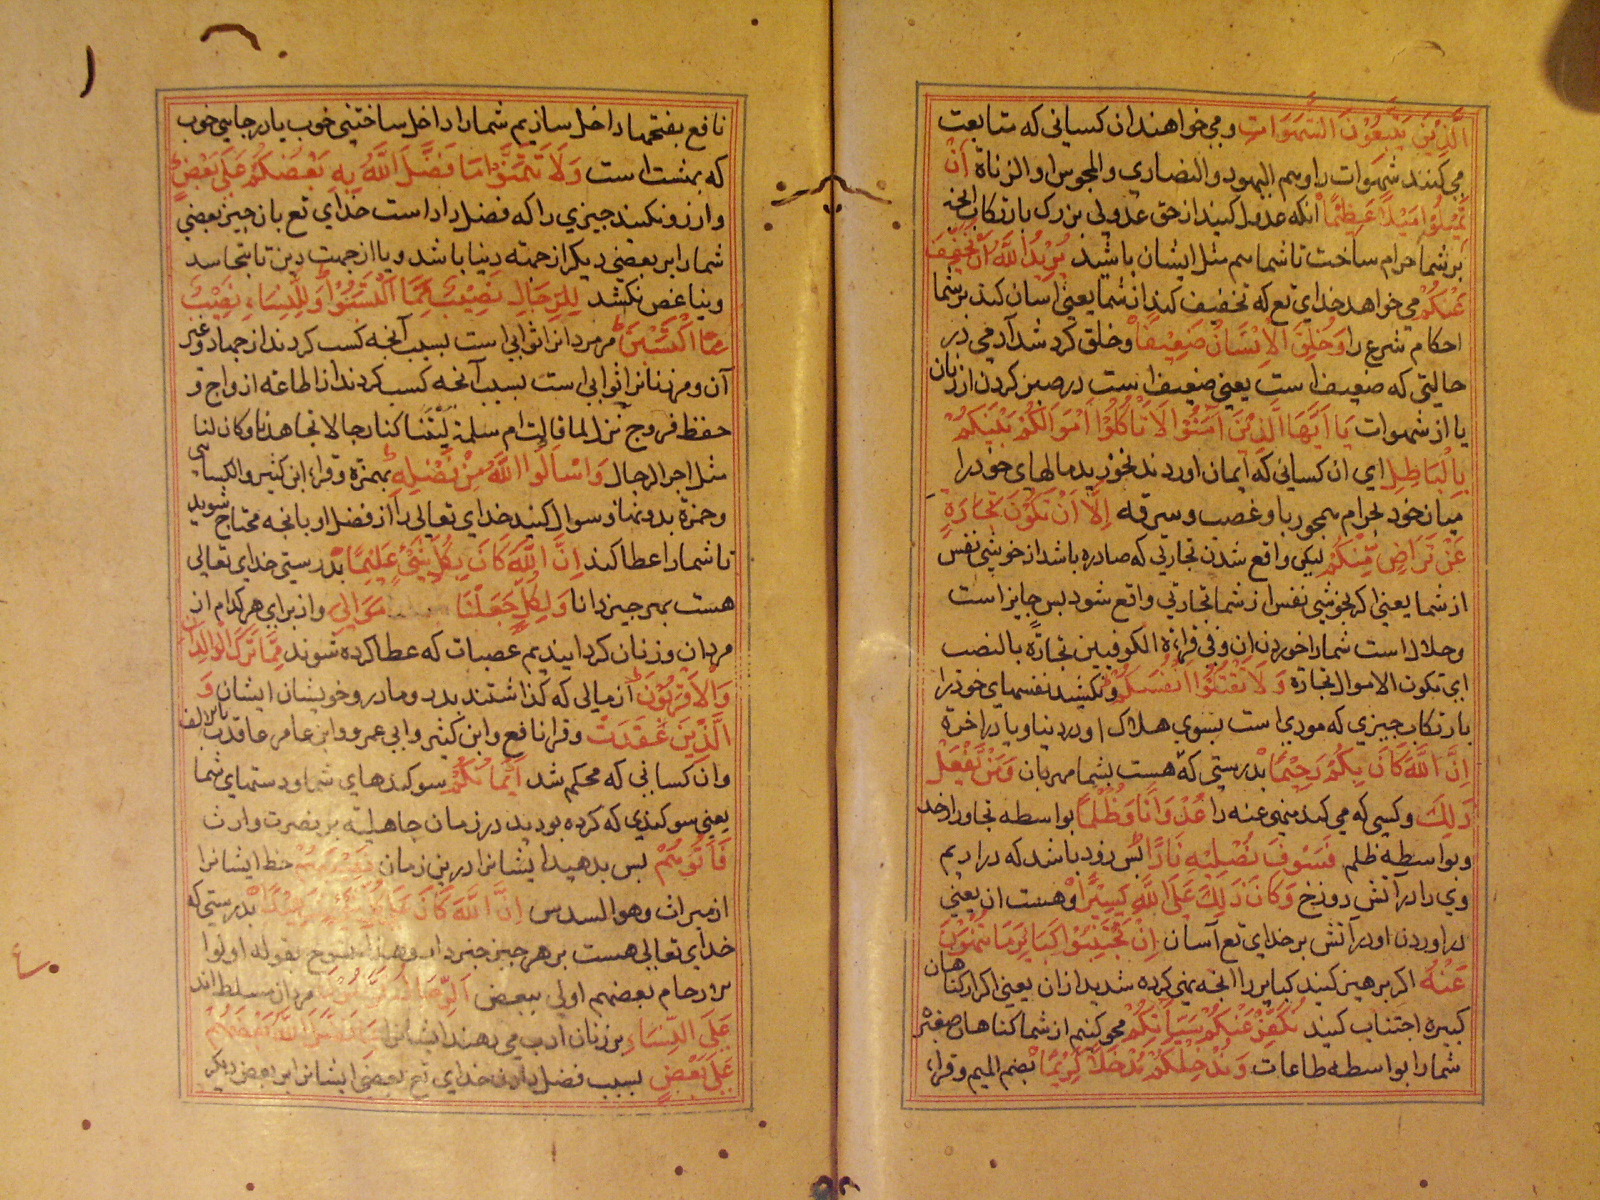 الَّذِيْنَ يَتَّبِعُوْنَ الشَّهَوَاتِ و مي خواهند ان كساني كه متابعت
مي كنند شهوات را وهم اليهود والنصاري والمجوس او الزناة اَنْ
تَمِيْلُوْا مَيْلًا عَظِيْمًا انكه عدول كنيد از حق عدولي بزرك بارتكاب انچه
بر شما حرام ساخت تا شما هم مثل ايشان باشيد يُرِيْدُ اللّٰهُ اَنْ يُخَفِّفَ
عَنْكُمْ مي خواهد خداي تع كه تخفيف كند از شما يعني اسان كند بر شما
احكام شرع را وَخُلِقَ الْاِنْسَانُ ضَعِيْفًا و خلق كرد شد ادمي در
حالتي كه ضعيف است يعني ضعيف است در صبر كردن از زنان
يا از شهوات يَا اَيُّهَا الَّذِيْنَ اٰمَنُوْا لَا تَاْكُلُوْا اَمْوَالَكُمْ بَيْنَكُمْ
بِالْبَاطِلِ اي ان كساني كه ايمان اوردند نخوريد مالهاي خود را
ميان خود بحرام همچو ربا و غصب و سرقه اِلَّا اَنْ تَكُوْنَ تِجَارَةً
عَنْ تَرَاضٍ مِّنْكُمْ ليكن واقع شدن تجارتي كه صادره باشد از خوشي نفس
از شما يعني اكر بخوشي نفس از شما تجارتي واقع شود بس جايز است
و حلال است شما را خوردن ان و في قراءة الكوفيين تجارة بالنصب
اي تكون الاموال تجارة وَلَا تَقْتُلُوْا اَنْفُسَكُمْ و نكشيد نفسهاي خود را
بارتكاب چيزي كه مودي است بسوي هلاك او در دنيا و يا در اخرة
اِنَّ اللّٰهَ كَانَ بِكُمْ رَحِيْمًا بدرستي كه هست بشما مهربان وَمَنْ يَّفْعَلْ
ذٰلِكَ و كسي كه مي كند منهي عنه را عُدْوَانًا وَّظُلْمًا بواسطه تجاوز از حد
و بواسطه ظلم فَسَوْفَ نُصْلِيْهِ نَارًا بس زود باشد كه در اريم
وي را در اتش دوزخ وَكَانَ ذٰلِكَ عَلَى اللّٰهِ يَسِيْرًا و هست ان يعني
در اوردن او در آتش بر خداي تع آسان اِنْ تَجْتَنِبُوْا كَبَائِرَ مَا تُنْهَوْنَ
عَنْهُ اكر پرهيز كنيد كبائر را انچه نهي كرده شديد از ان يعني اكر از كناهان
كبيره اجتناب كنيد نُكَفِّرْ عَنْكُمْ سَيِّاٰتِكُمْ محو كنيم از شما كناهان صغيره
شما را بواسطه طاعات وَنُدْخِلْكُمْ مُدْخَلًا كَرِيْمًا بضم الميم و قراء
نافع بفتحها داخل سازيم شما را داخل ساختني خوب يا در جاي خوب
كه بهشت است وَلَا تَتَمَنَّوْا مَا فَضَّلَ اللّٰهُ بِهٖ بَعْضَكُمْ عَلٰى بَعْضٍ
و ارزو نكنيد چيزي را كه فضل داد است خداي تع بان چيز بعضي
شما را بر بعضي ديكر از جهته دنيا باشد و يا از جهت دين تا تحاسد
و تباغض نكشد لِلرِّجَالِ نَصِيْبٌ مِّمَّا اكْتَسَبُوْا وَلِلنِّسَاءِ نَصِيْبٌ
مِمَّا اكْتَسَبْنَ مر مردانرا ثوابي است بسبب آنچه كسب كردند از جهاد و غير
آن و مر زنانرا ثوابي است بسبب آنچه كسب كردند از اطاعة ازواج و
حفظ فروج نزل لما قالت ام سلمة لَيْتَنَا كنا رجالا تجاهدنا و كان لنا
مثل اجر الرجال وَاسْاَلُوا اللّٰهَ مِنْ فَضْلِهٖ بهمزة و قراء ابن كثير والكسائي
و حمزة بدونها و سوال كنيد خداي تعالي را از فضل او بانچه محتاج شويد
تا شما را عطا كند اِنَّ اللّٰهَ كَانَ بِكُلِّ شَيْءٍ عَلِيْمًا بدرستي خداي تعالي
هست بهر چيز دانا وَلِكُلٍّ جَعَلْنَا مَوَالِيَ و از براي هر كدام از
مردان و زنان كردانيديم عصبات كه عطا كرده شوند مِمَّا تَرَكَ الْوَالِدَانِ
وَالْاَقْرَبُوْنَ از مالي كه كذاشتند پدر و مادر و خويشان ايشان وَ
الَّذِيْنَ عَقَدَتْ و قرا نافع و ابن كثير و ابي عمرو و ابن عامر عاقدت بالالف
و ان كساني كه محكم شد اَيْمَانُكُمْ سوكندهاي شما و دستهاي شما
يعني سوكندي كه كرده بوديد در زمان جاهليته بر نصرت و ارث
فَاٰتُوْهُمْ بس بدهيد ايشانرا در ين زمان نَصِيْبَهُمْ حظ ايشانرا
از ميراث و هو السدس اِنَّ اللّٰهَ كَانَ عَلٰى كُلِّ شَيْءٍ شَهِيْدًا بدرستي كه
خداي تعالي هست بر هر چيز خبردار و هذا منسوخ بقوله اولوا
الارحام بعضهم اولى ببعض اَلرِّجَالُ قَوَّامُوْنَ مردان مسلط اند
عَلَى النِّسَاءِ بر زنان ادب مي دهند ايشانرا بِمَا فَضَّلَ اللّٰهُ بَعْضَهُمْ
عَلٰى بَعْضٍ بسبب فضل دادن خداي تع بعضي ايشانرا بر بعض ديكر